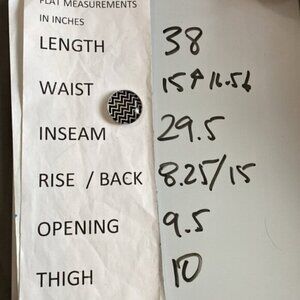 FLAT MEASUREMENTS
IN INCHES
LENGTH 38
WAIST 15↑16.5
INSEAM 29.5
RISE / BACK 8.25/15
OPENING 9.5
THIGH 10